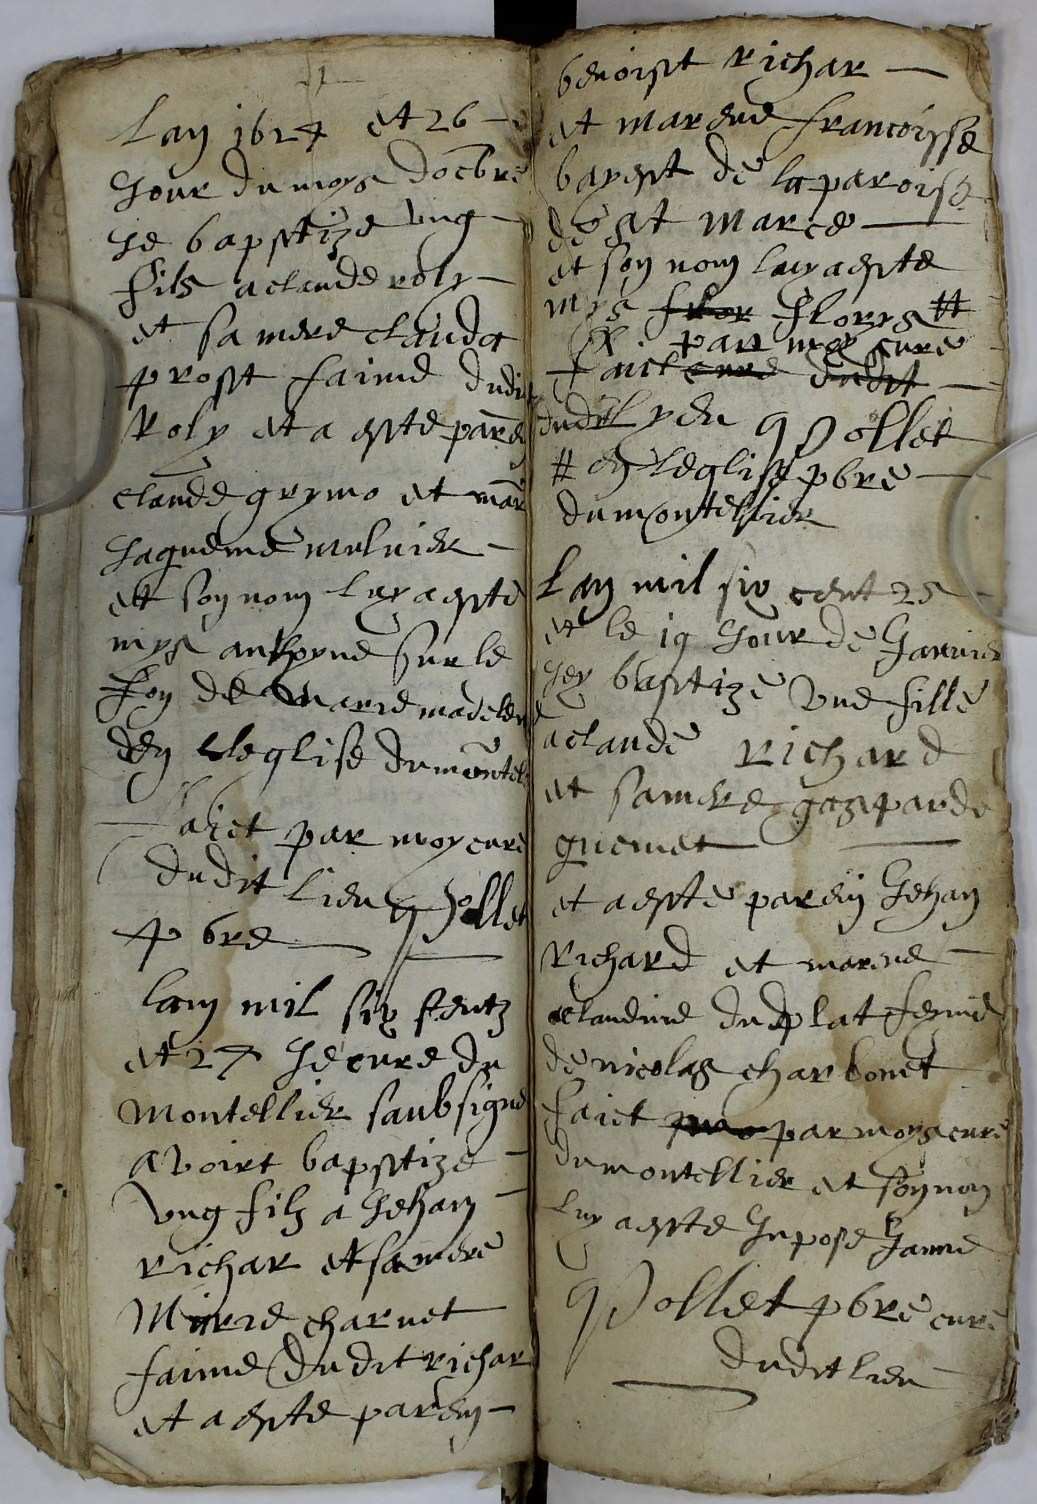 Lan 1624 et 26
Jour du moys doctbre
Je baptize ung
filz a claude roly
et sa mere clauda
prost faime dudit
Roly et a este parē
claude grymo et mar
Jaqueme mulnier
et son nom luy a este
mys anthoyne sur le
foy de marie madelene
en leglise du montel
faict par moy cure
dudit lieu Pollet
pbre
Lan mil six sentz
et 24 Je cure du
montellier saubsigne
avoirt baptize
ung filz a Jehan
richar et sa mere
Marie charvet
faime dudit richar
et a este parein
benoist richar
et marene francoisse
bayest de la paroise
de st marce
et son nom luy a este
mys floris #
par moy cure
faict cure dudit
dudit lyeu Pollet
# en leglise pbre
du montellier
Lan mil six cent 25
et le 19 Jour de Janvier
Jey baptize une fille
a claude richard
et sa mere gasparde
guemet
et a este parein Jehan
Richard et marene
claudine du plat feme
de nicolas charbonet
faict par moys cure
du montellier et son nom
luy a este Inpose Janne
Pollet pbre cure
dudit lieu